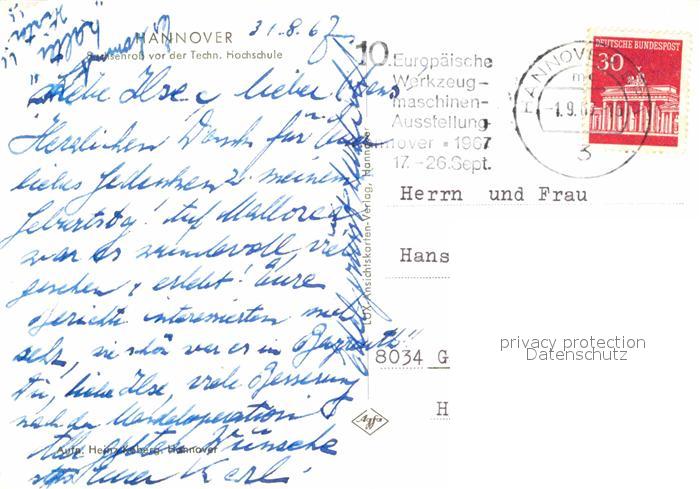 31.8.67
HANNOVER
Sachsenroß vor der Techn. Hochschule
Liebe Ilse, lieber Hans
Herzlichen Dank für Euer
liebes Gedenken z. meinem
Geburtstag! Auf Mallorca
war es wundervoll, viel
gesehen & erlebt! Eure
Berichte interessierten mich
sehr, wie schön war es in Bayreuth!!
Dir, liebe Ilse, viele Besserung
nach der Mandeloperation
Alle guten Wünsche
Euer Karl.
Aufn. Heinz Koberg, Hannover
LUX-Ansichtskarten-Verlag, Hannover
Agfa
10. Europäische
Werkzeug-
maschinen-
Ausstellung
Hannover • 1967
17.-26.Sept.
HANNOVER
-1.9.
3
DEUTSCHE BUNDESPOST
30
Herrn und Frau
Hans
8034 G
H
privacy protection
Datenschutz